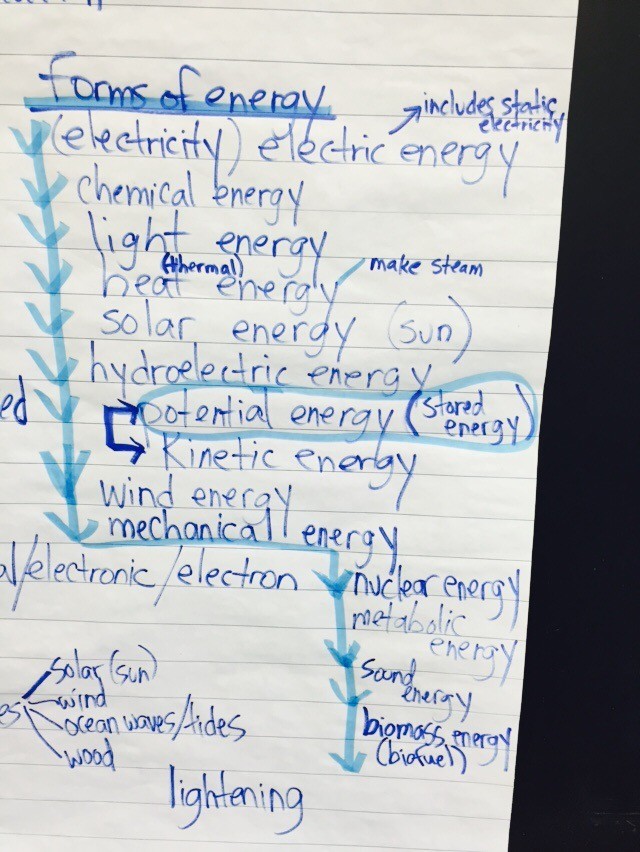 forms of energy
includes static
electricity
(electricity) electric energy
chemical energy
light energy
(thermal)
heat energy
make steam
solar energy (sun)
hydroelectric energy
potential energy (stored
energy)
ed
Kinetic energy
wind energy
mechanical energy
al/electronic/electron
nuclear energy
metabolic
energy
sound
energy
biomass energy
(biofuel)
solar (sun)
wind
es
ocean waves/tides
wood
lightening